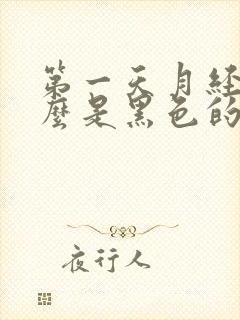 第一天月经
麼是黑色的
夜行人